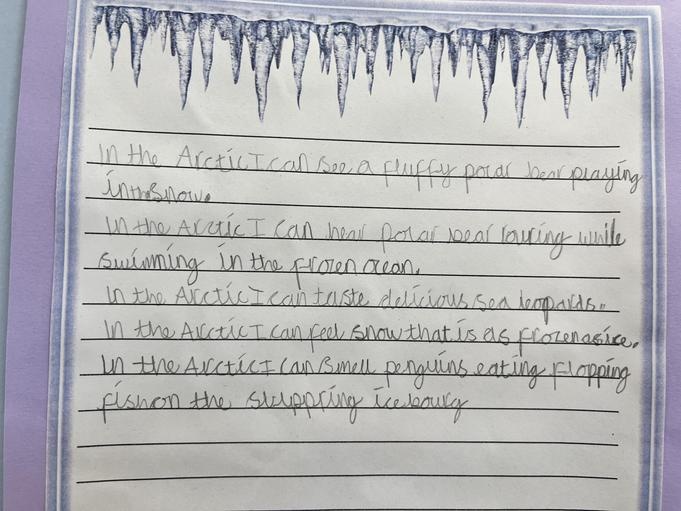 In the Arctic I can see a fluffy polar bear playing
in the snow.
In the Arctic I can hear polar bear rouring while
swimming in the frozen ocean.
In the Arctic I can taste delicious sea leopards.
In the Arctic I can feel snow that is as frozen as ice.
In the Arctic I can smell penguins eating flopping
fish on the slippring icebourg